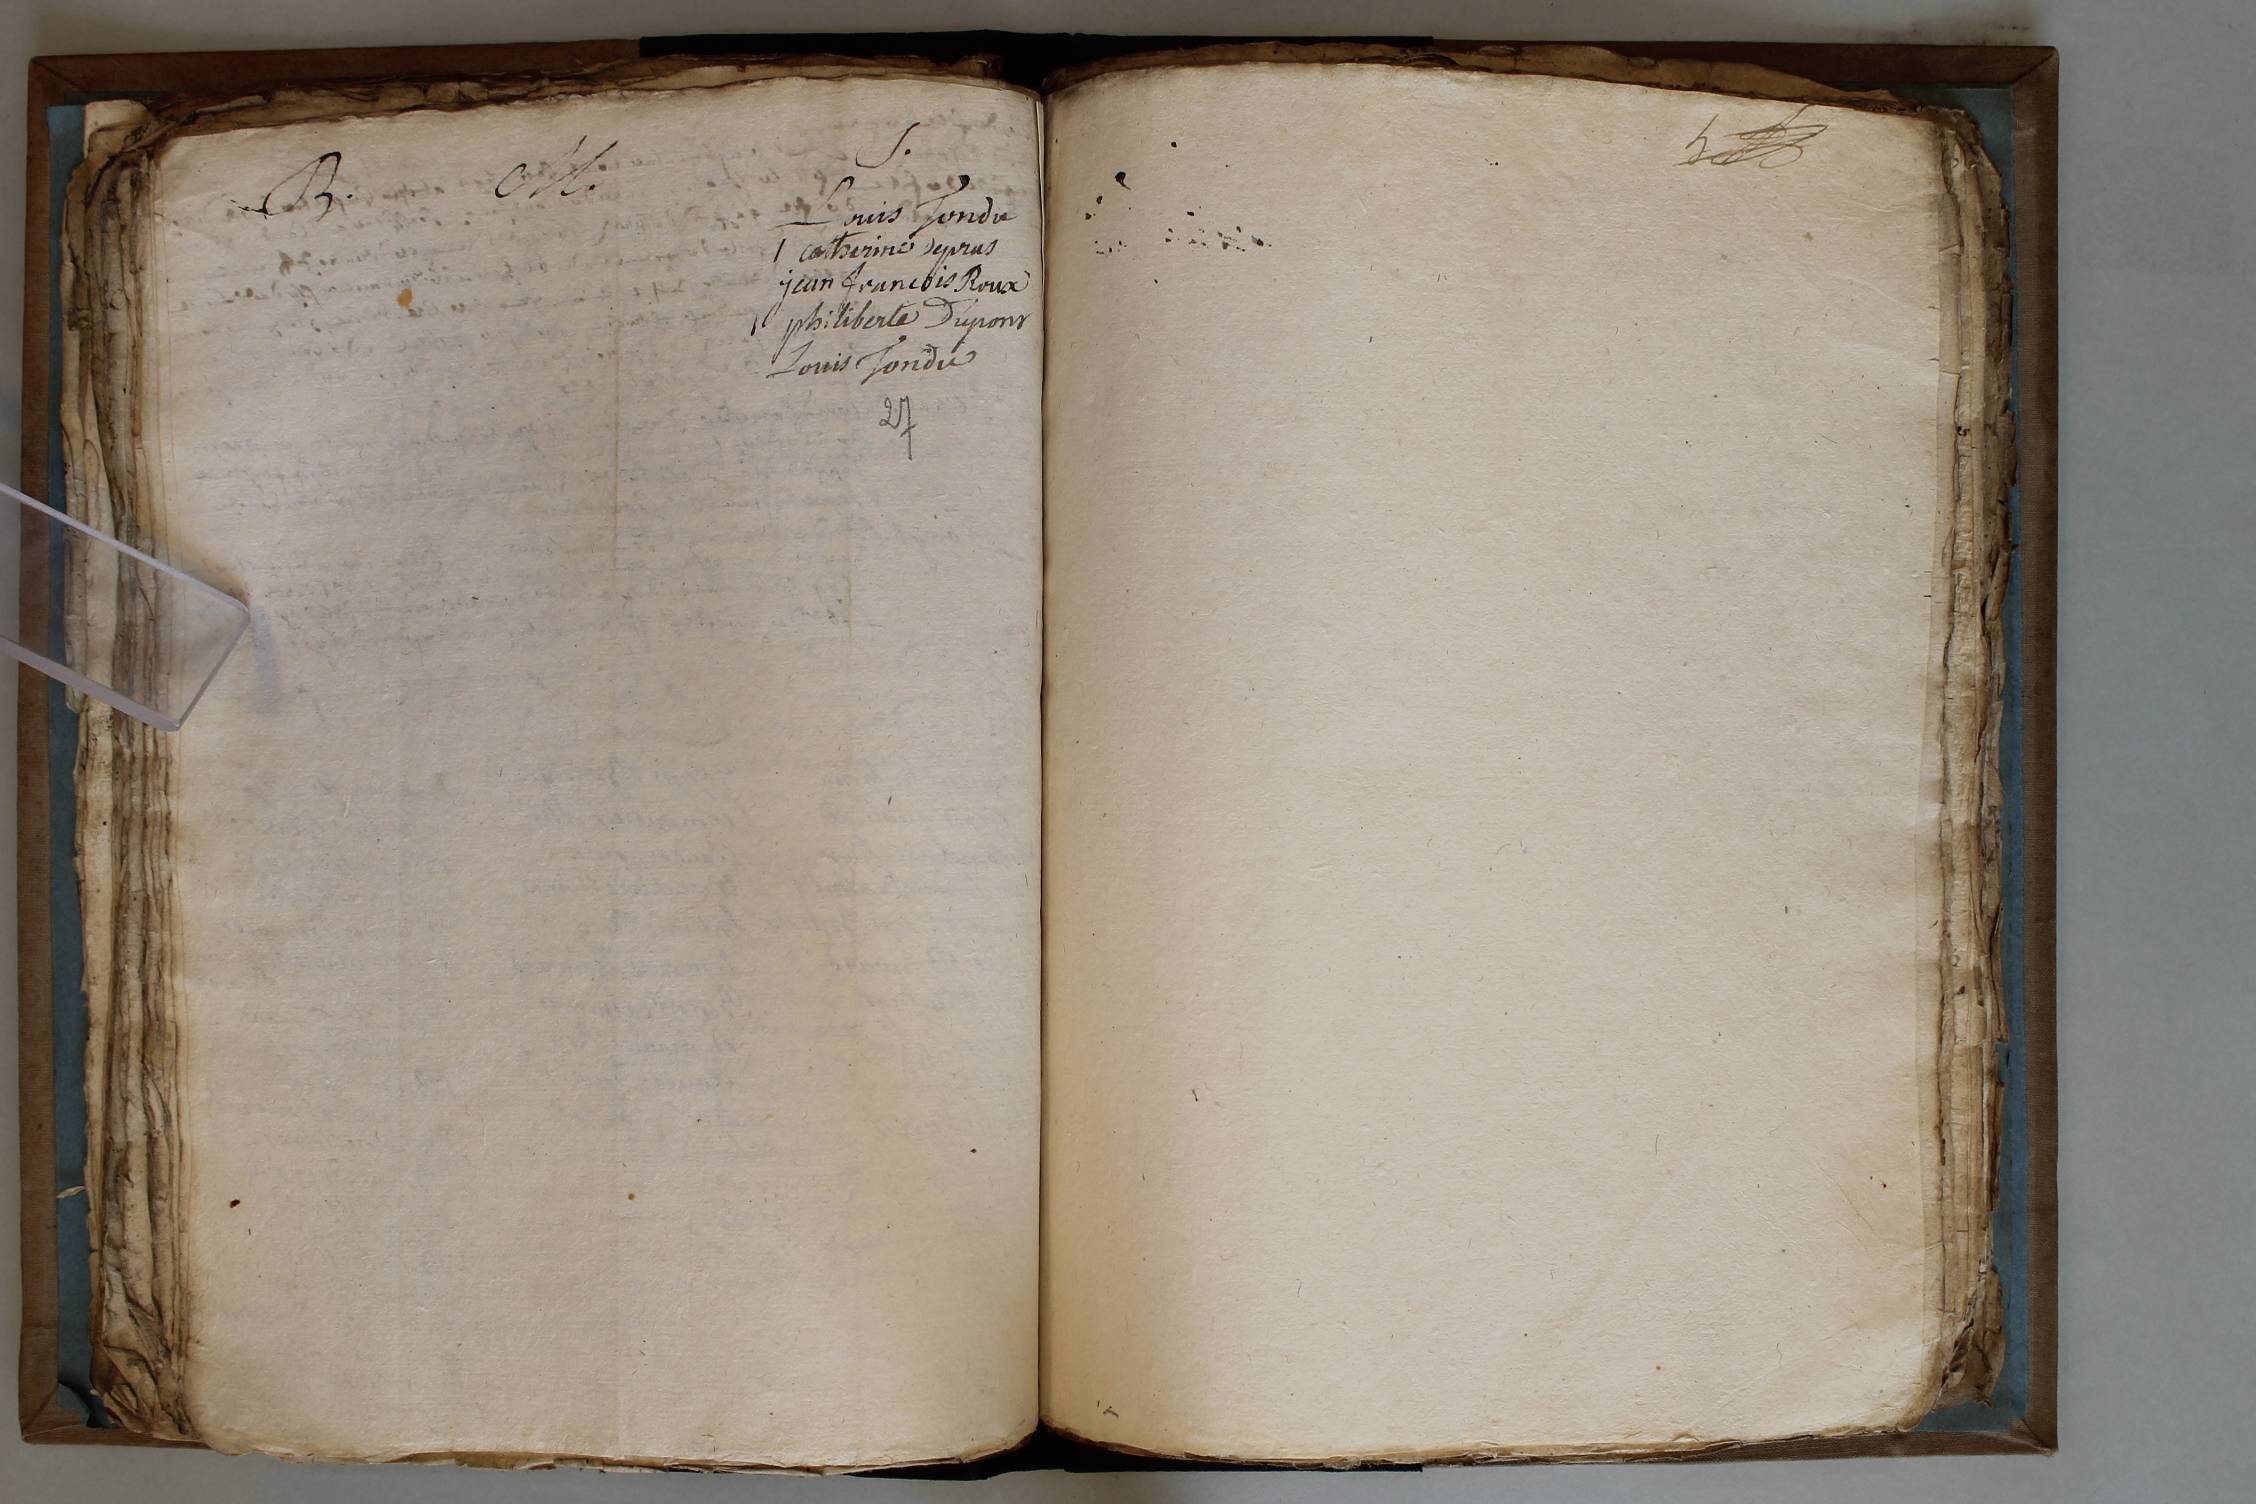 B. M. S.
Louis Tondu
1 catherine Depras
jean francois Roux
1 philiberte Dupont
Louis Tondu
27